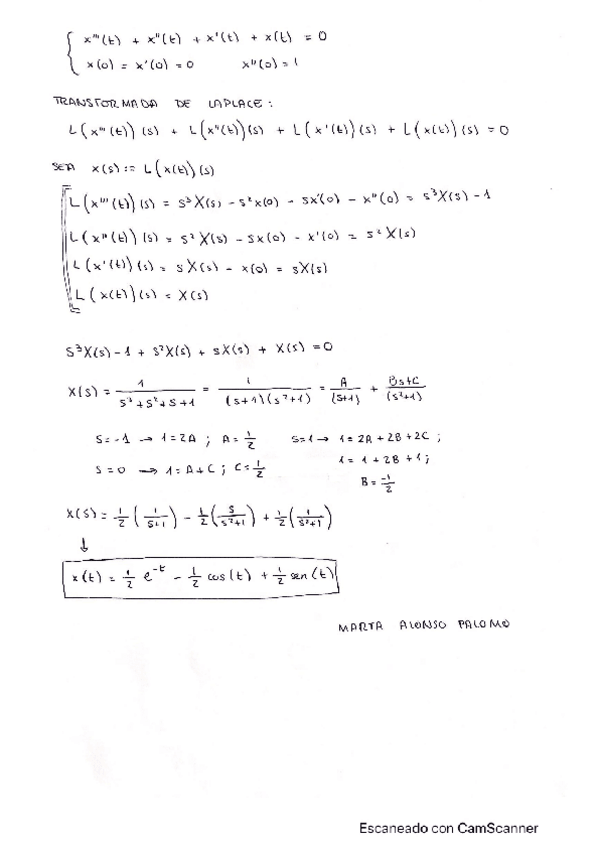 x'''(t) + x''(t) + x'(t) + x(t) = 0
x(0) = x'(0) = 0 x''(0) = 1
TRANSFORMADA DE LAPLACE:
L(x'''(t))(s) + L(x''(t))(s) + L(x'(t))(s) + L(x(t))(s) = 0
SEA x(s) := L(x(t))(s)
L(x'''(t))(s) = s³X(s) - s²x(0) - sx'(0) - x''(0) = s³X(s) - 1
L(x''(t))(s) = s²X(s) - sx(0) - x'(0) = s²X(s)
L(x'(t))(s) = sX(s) - x(0) = sX(s)
L(x(t))(s) = X(s)
s³X(s) - 1 + s²X(s) + sX(s) + X(s) = 0
X(s) = 1/(s³+s²+s+1) = 1/((s+1)(s²+1)) = A/(s+1) + (Bs+C)/(s²+1)
s = -1 → 1 = 2A ; A = 1/2 s = 1 → 1 = 2A + 2B + 2C ;
s = 0 → 1 = A + C ; C = 1/2 1 = 1 + 2B + 1 ;
B = -1/2
X(s) = 1/2 (1/(s+1)) - 1/2 (s/(s²+1)) + 1/2 (1/(s²+1))
↓
x(t) = 1/2 e^-t - 1/2 cos(t) + 1/2 sen(t)
MARTA ALONSO PALOMO
Escaneado con CamScanner